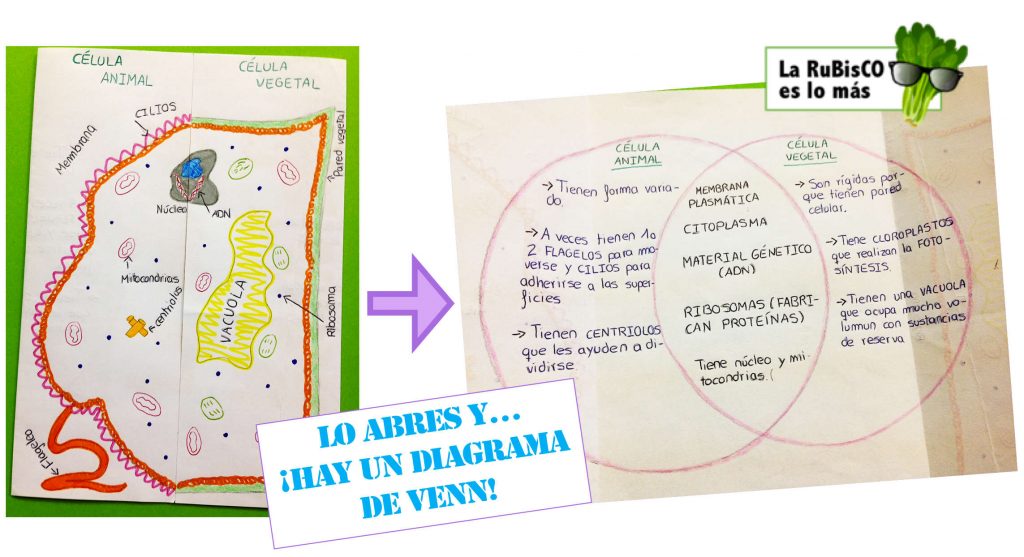 CÉLULA
ANIMAL
CÉLULA
VEGETAL
CILIOS
Membrana
Pared vegetal
Núcleo
ADN
Mitocondrias
centriolos
VACUOLA
Ribosoma
Flagelo
LO ABRES Y...
¡HAY UN DIAGRAMA
DE VENN!
La RuBisCO
es lo más
CÉLULA
ANIMAL
→ Tienen forma varia-
do.
→ A veces tienen 1o
2 FLAGELOS para mo-
verse y CILIOS para
adherirse a las super-
ficies
→ Tienen CENTRIOLOS
que les ayuden a di-
vidirse.
MEMBRANA
PLASMÁTICA
CITOPLASMA
MATERIAL GÉNETICO
(ADN)
RIBOSOMAS (FABRI-
CAN PROTEÍNAS)
Tiene núcleo y mi-
tocondrias.
CÉLULA
VEGETAL
→ Son rígidas por-
que tienen pared
celular.
→ Tiene CLOROPLASTOS
que realizan la FOTO-
SÍNTESIS.
→ Tienen una VACUOLA
que ocupa mucho vo-
lumun con sustancias
de reserva